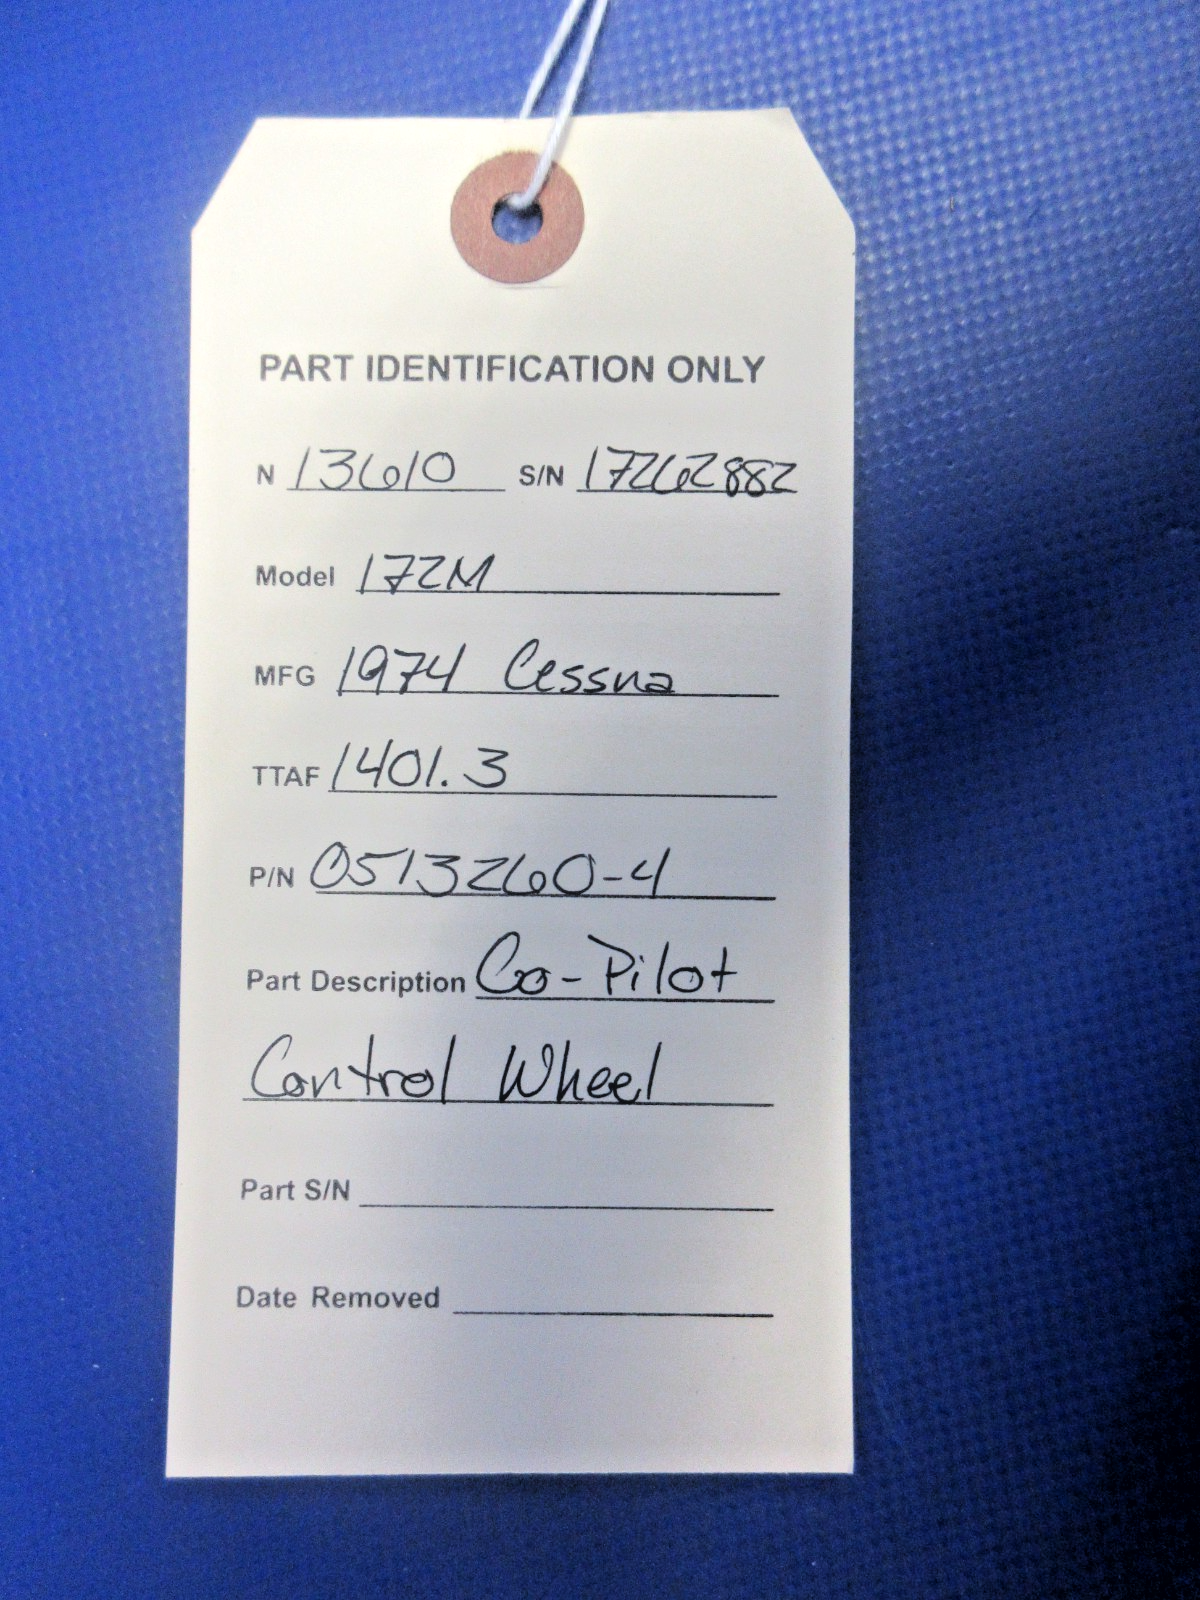 PART IDENTIFICATION ONLY
N 13610 S/N 17262882
Model 172M
MFG 1974 Cessna
TTAF 1401.3
P/N 0513260-4
Part Description Co-Pilot
Control Wheel
Part S/N
Date Removed